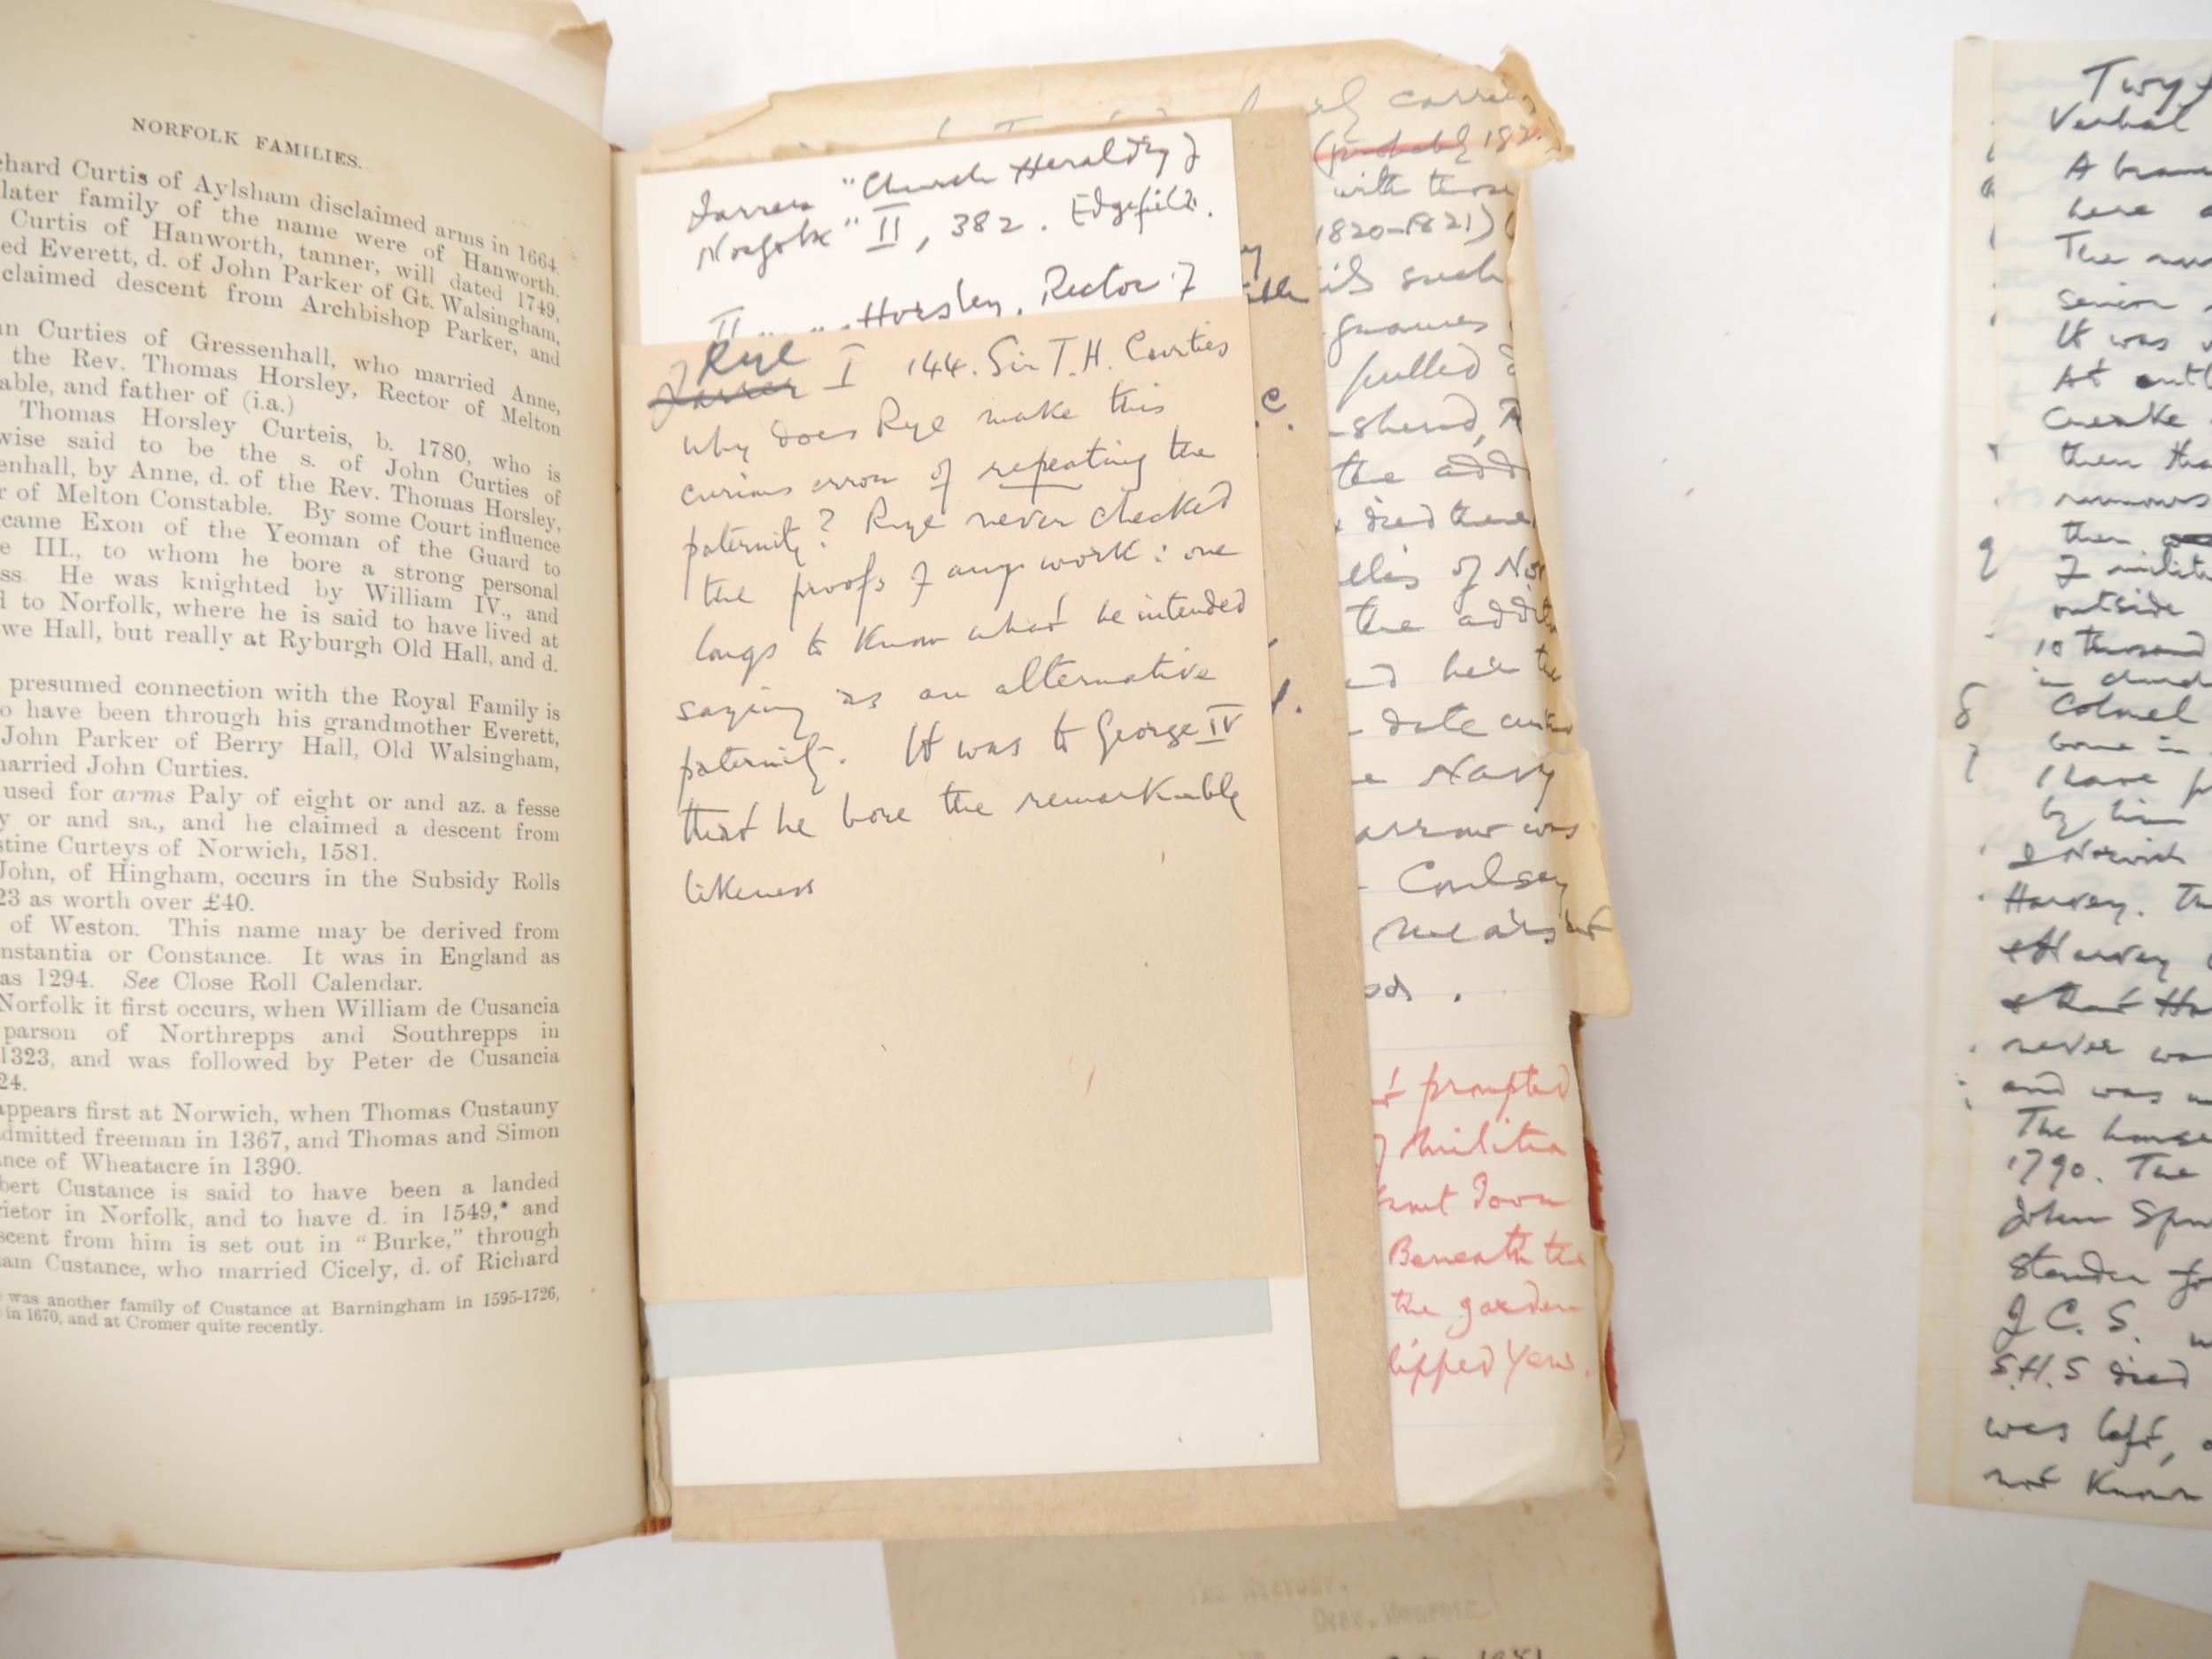 NORFOLK FAMILIES.
chard Curtis of Aylsham disclaimed arms in 1664.
later family of the name were of Hanworth.
Curtis of Hanworth, tanner, will dated 1749,
ed Everett, d. of John Parker of Gt. Walsingham,
claimed descent from Archbishop Parker, and
n Curties of Gressenhall, who married Anne,
the Rev. Thomas Horsley, Rector of Melton
able, and father of (i.a.)
Thomas Horsley Curteis, b. 1780, who is
wise said to be the s. of John Curties of
enhall, by Anne, d. of the Rev. Thomas Horsley,
r of Melton Constable. By some Court influence
came Exon of the Yeoman of the Guard to
e III., to whom he bore a strong personal
ss. He was knighted by William IV., and
d to Norfolk, where he is said to have lived at
we Hall, but really at Ryburgh Old Hall, and d.
presumed connection with the Royal Family is
o have been through his grandmother Everett,
John Parker of Berry Hall, Old Walsingham,
married John Curties.
used for arms Paly of eight or and az. a fesse
y or and sa., and he claimed a descent from
stine Curteys of Norwich, 1581.
John, of Hingham, occurs in the Subsidy Rolls
23 as worth over £40.
of Weston. This name may be derived from
nstantia or Constance. It was in England as
as 1294. See Close Roll Calendar.
Norfolk it first occurs, when William de Cusancia
parson of Northrepps and Southrepps in
1323, and was followed by Peter de Cusancia
24.
appears first at Norwich, when Thomas Custauny
dmitted freeman in 1367, and Thomas and Simon
nce of Wheatacre in 1390.
bert Custance is said to have been a landed
rietor in Norfolk, and to have d. in 1549,* and
scent from him is set out in "Burke," through
iam Custance, who married Cicely, d. of Richard
was another family of Custance at Barningham in 1595-1726,
in 1670, and at Cromer quite recently.
Farrer "Church Heraldry of
Norfolk" II, 382. Edgefield.
Horsley, Rector of
Rye
Farrer I 144. Sir T.H. Curties
Why does Rye make this
curious error of repeating the
paternity? Rye never checked
the proofs of any work: one
longs to know what he intended
saying as an alternative
paternity. It was to George IV
that he bore the remarkable
likeness
carrie
(probably 182
with those
1820-1821)
such
pulled
the add
died there
of Nor
the addit
and her the
date
Navy
was
Coulsey
prompted
of militia
front Door
Beneath the
the garden
lipped Yew.
The Rectory,
Diss, Norfolk.
1951
Twyf
Verbal
A bran
here
The
senior
It was
At
Creake
then tha
removes
then
of milita
outside
10 thousand
Colonel
born in
I have
by him
& Norwich
Harvey. Th
Harvey
that Ha
never wa
and was
The house
1790. The
John Spu
Standen for
J C. S. w
S.H.S died
was left,
not Known